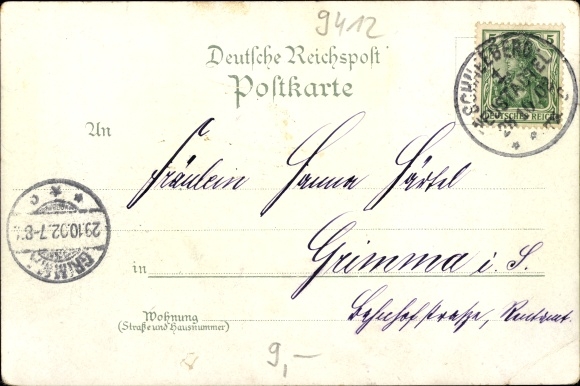 9412
Deutsche Reichspost
Postkarte
5 5
SCHNEEBERG
NEUSTÄDTEL
DEUTSCHES REICH
An
Fräulein Hanna Härtel
GRIMMA
29.10.02.7-8
in Grimma i. S.
Wohnung
(Straße und Hausnummer)
Bahnhofstraße, Rentamt.
9,–